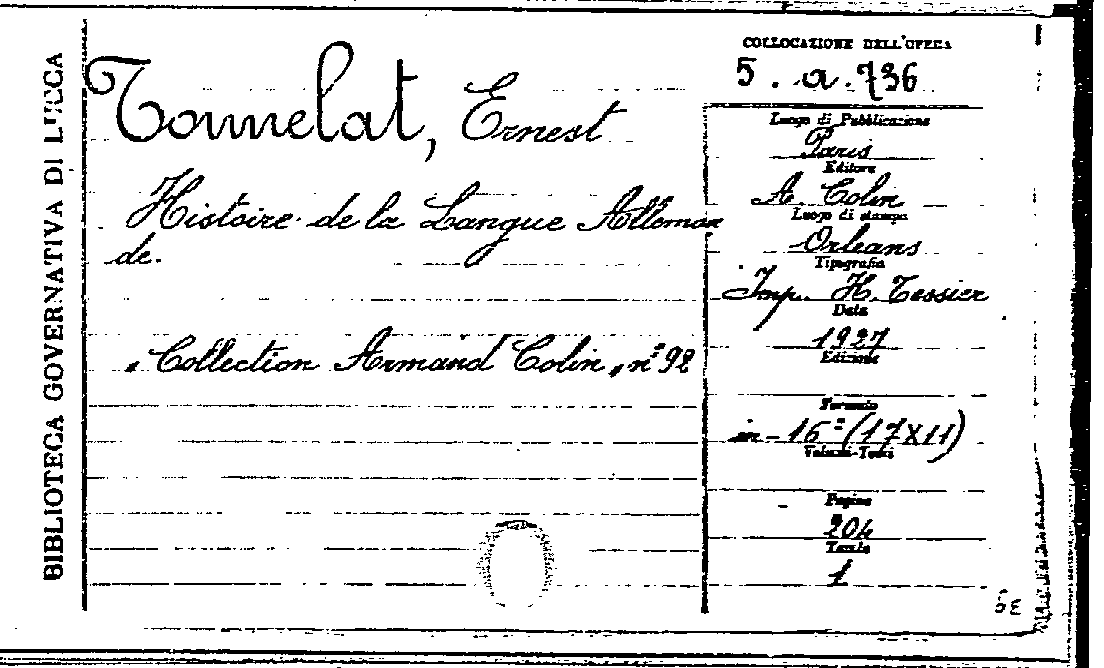 BIBLIOTECA GOVERNATIVA DI LUCCA
Tonnelat, Ernest
Histoire de la Langue Alleman
de.
„Collection Armand Colin„ n° 92
COLLOCAZIONE DELL'OPERA
5. a. 736
Luogo di Pubblicazione
Paris
Editore
A. Colin
Luogo di stampa
Orleans
Tipografia
Imp. H. Tessier
Data
1927
Edizione
Formato
in-16° (17X11)
Volumi-Tomi
Pagine
204
Tavole
1